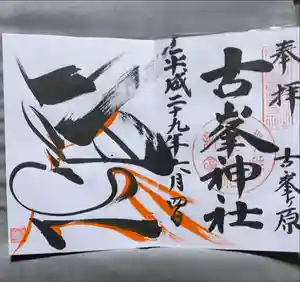 奉拝
古峯ヶ原
古峯神社
平成二十九年二月四日